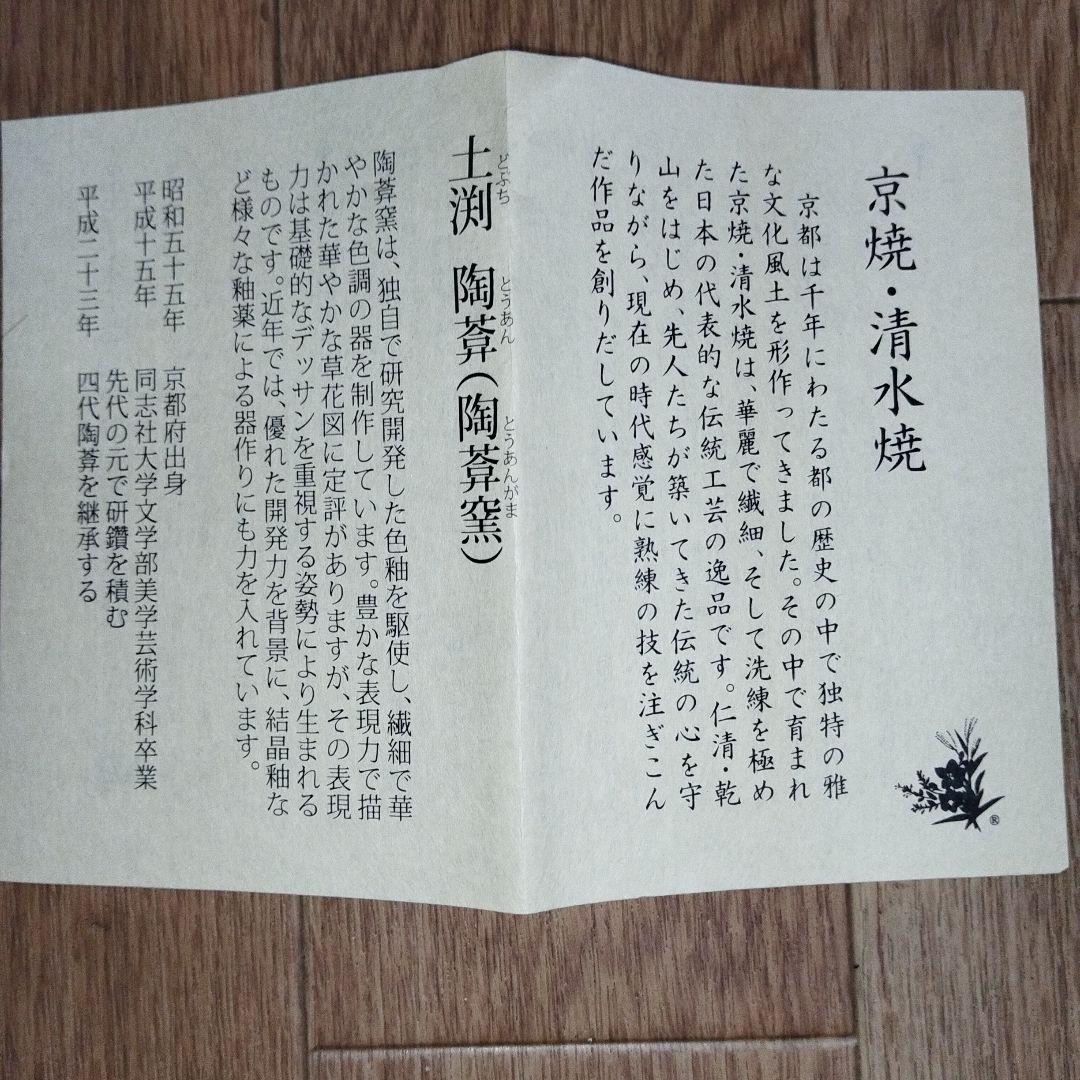 京焼・清水焼
京都は千年にわたる都の歴史の中で独特の雅
な文化風土を形作ってきました。その中で育まれ
た京焼・清水焼は、華麗で繊細、そして洗練を極め
た日本の代表的な伝統工芸の逸品です。仁清・乾
山をはじめ、先人たちが築いてきた伝統の心を守
りながら、現在の時代感覚に熟練の技を注ぎこん
だ作品を創りだしています。
®
土渕 陶葊(陶葊窯)
どぶち とうあん とうあんがま
陶葊窯は、独自で研究開発した色釉を駆使し、繊細で華
やかな色調の器を制作しています。豊かな表現力で描
かれた華やかな草花図に定評がありますが、その表現
力は基礎的なデッサンを重視する姿勢により生まれる
ものです。近年では、優れた開発力を背景に、結晶釉な
ど様々な釉薬による器作りにも力を入れています。
昭和五十五年 京都府出身
平成十五年 同志社大学文学部美学芸術学科卒業
先代の元で研鑽を積む
平成二十三年 四代陶葊を継承する